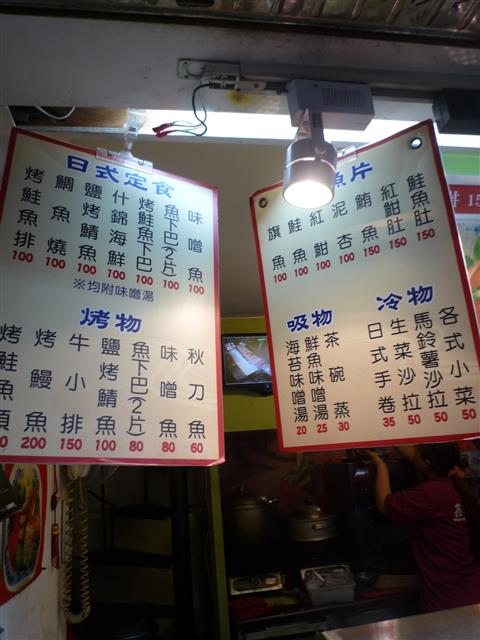 日式定食
烤鮭魚排 100
鯛魚燒 100
鹽烤鯖魚 100
什錦海鮮 100
烤鮭魚下巴 100
魚下巴(2片) 100
味噌魚 100
※均附味噌湯
烤物
烤鮭魚頭
烤鰻魚 200
牛小排 150
鹽烤鯖魚 100
魚下巴(2片) 80
味噌魚 80
秋刀魚 60
魚片
旗魚 100
鮭魚 100
紅魽 100
泥杏 100
鮪魚 150
紅魽肚 150
鮭魚肚 150
吸物
海苔味噌湯 20
鮮魚味噌湯 25
茶碗蒸 30
冷物
日式手卷 35
生菜沙拉 50
馬鈴薯沙拉 50
各式小菜 50